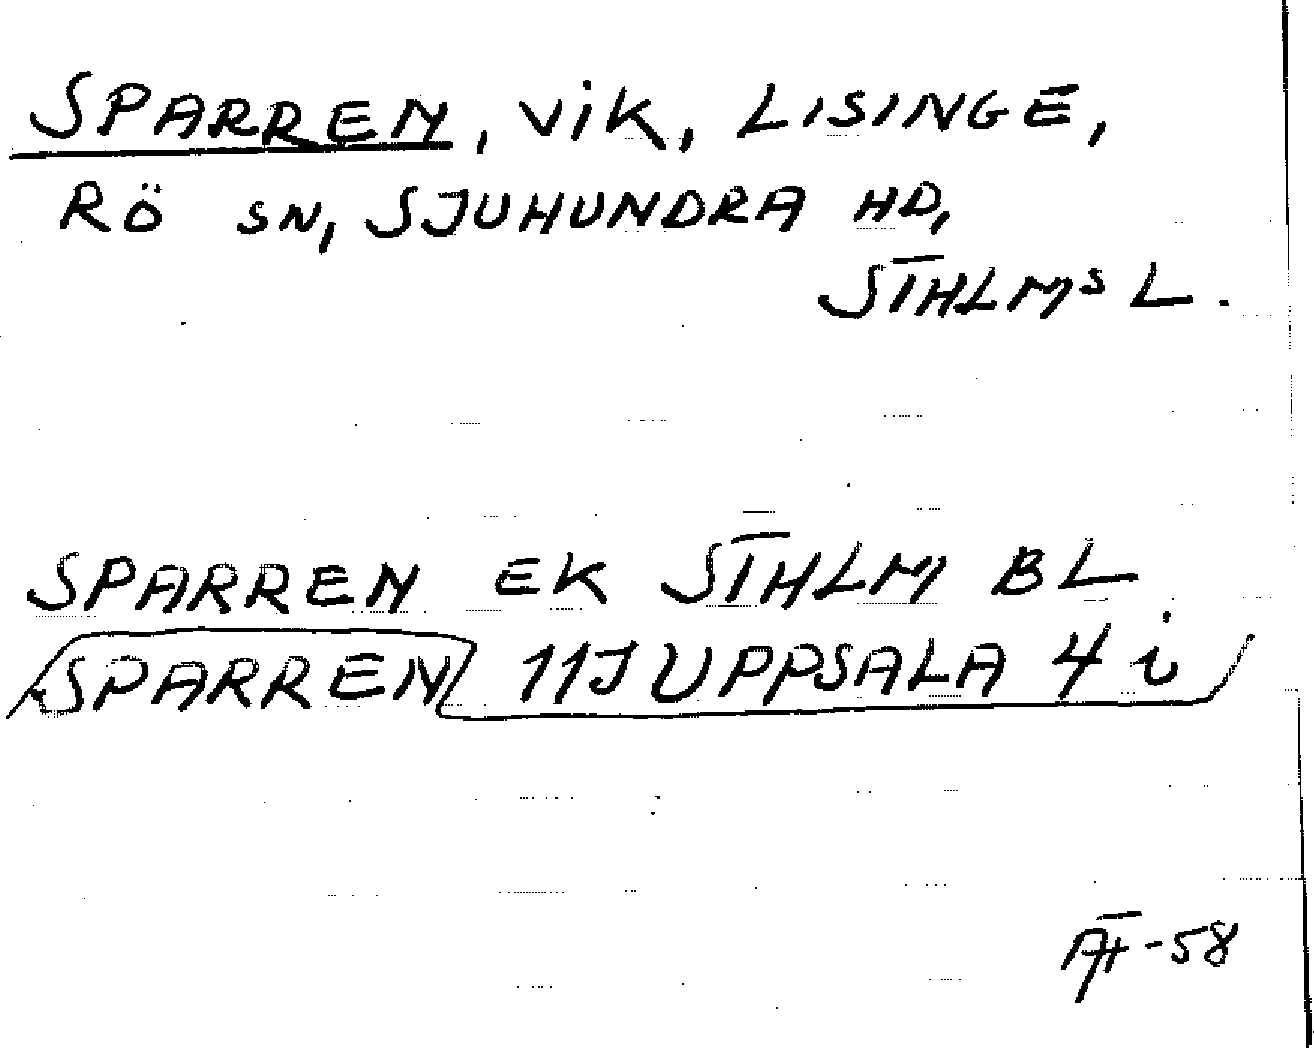 SPARREN, VIK, LISINGE,
RÖ SN, SJUHUNDRA HD,
STHLMS L.
SPARREN EK STHLM BL.
SPARREN 11J UPPSALA 4 i
-58